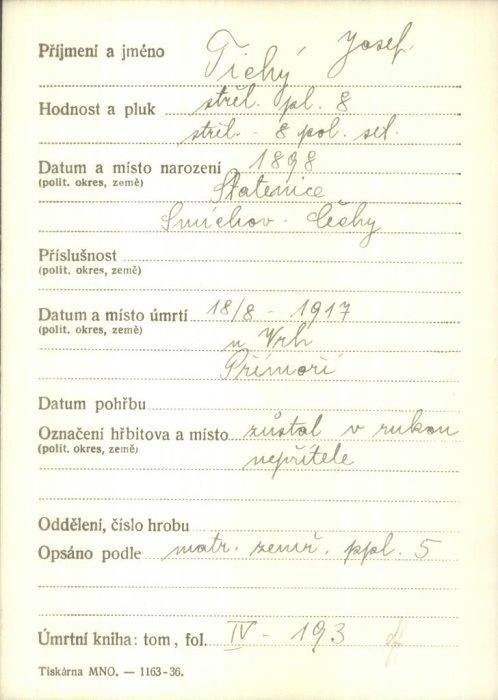 Příjmení a jméno Tichý Josef.
Hodnost a pluk střel. pl. 8
střel. - 8 pol. set.
Datum a místo narození 1898
(polit. okres, země) Statenice
Smíchov - Čechy
Příslušnost
(polit. okres, země)
Datum a místo úmrtí 18/8 - 1917
(polit. okres, země) u Vrh
Přímoří
Datum pohřbu
Označení hřbitova a místo zůstal v rukou
(polit. okres, země) nepřítele
Oddělení, číslo hrobu
Opsáno podle matr. zemř. ppl. 5
Úmrtní kniha: tom, fol. IV - 193
Tiskárna MNO. — 1163-36.